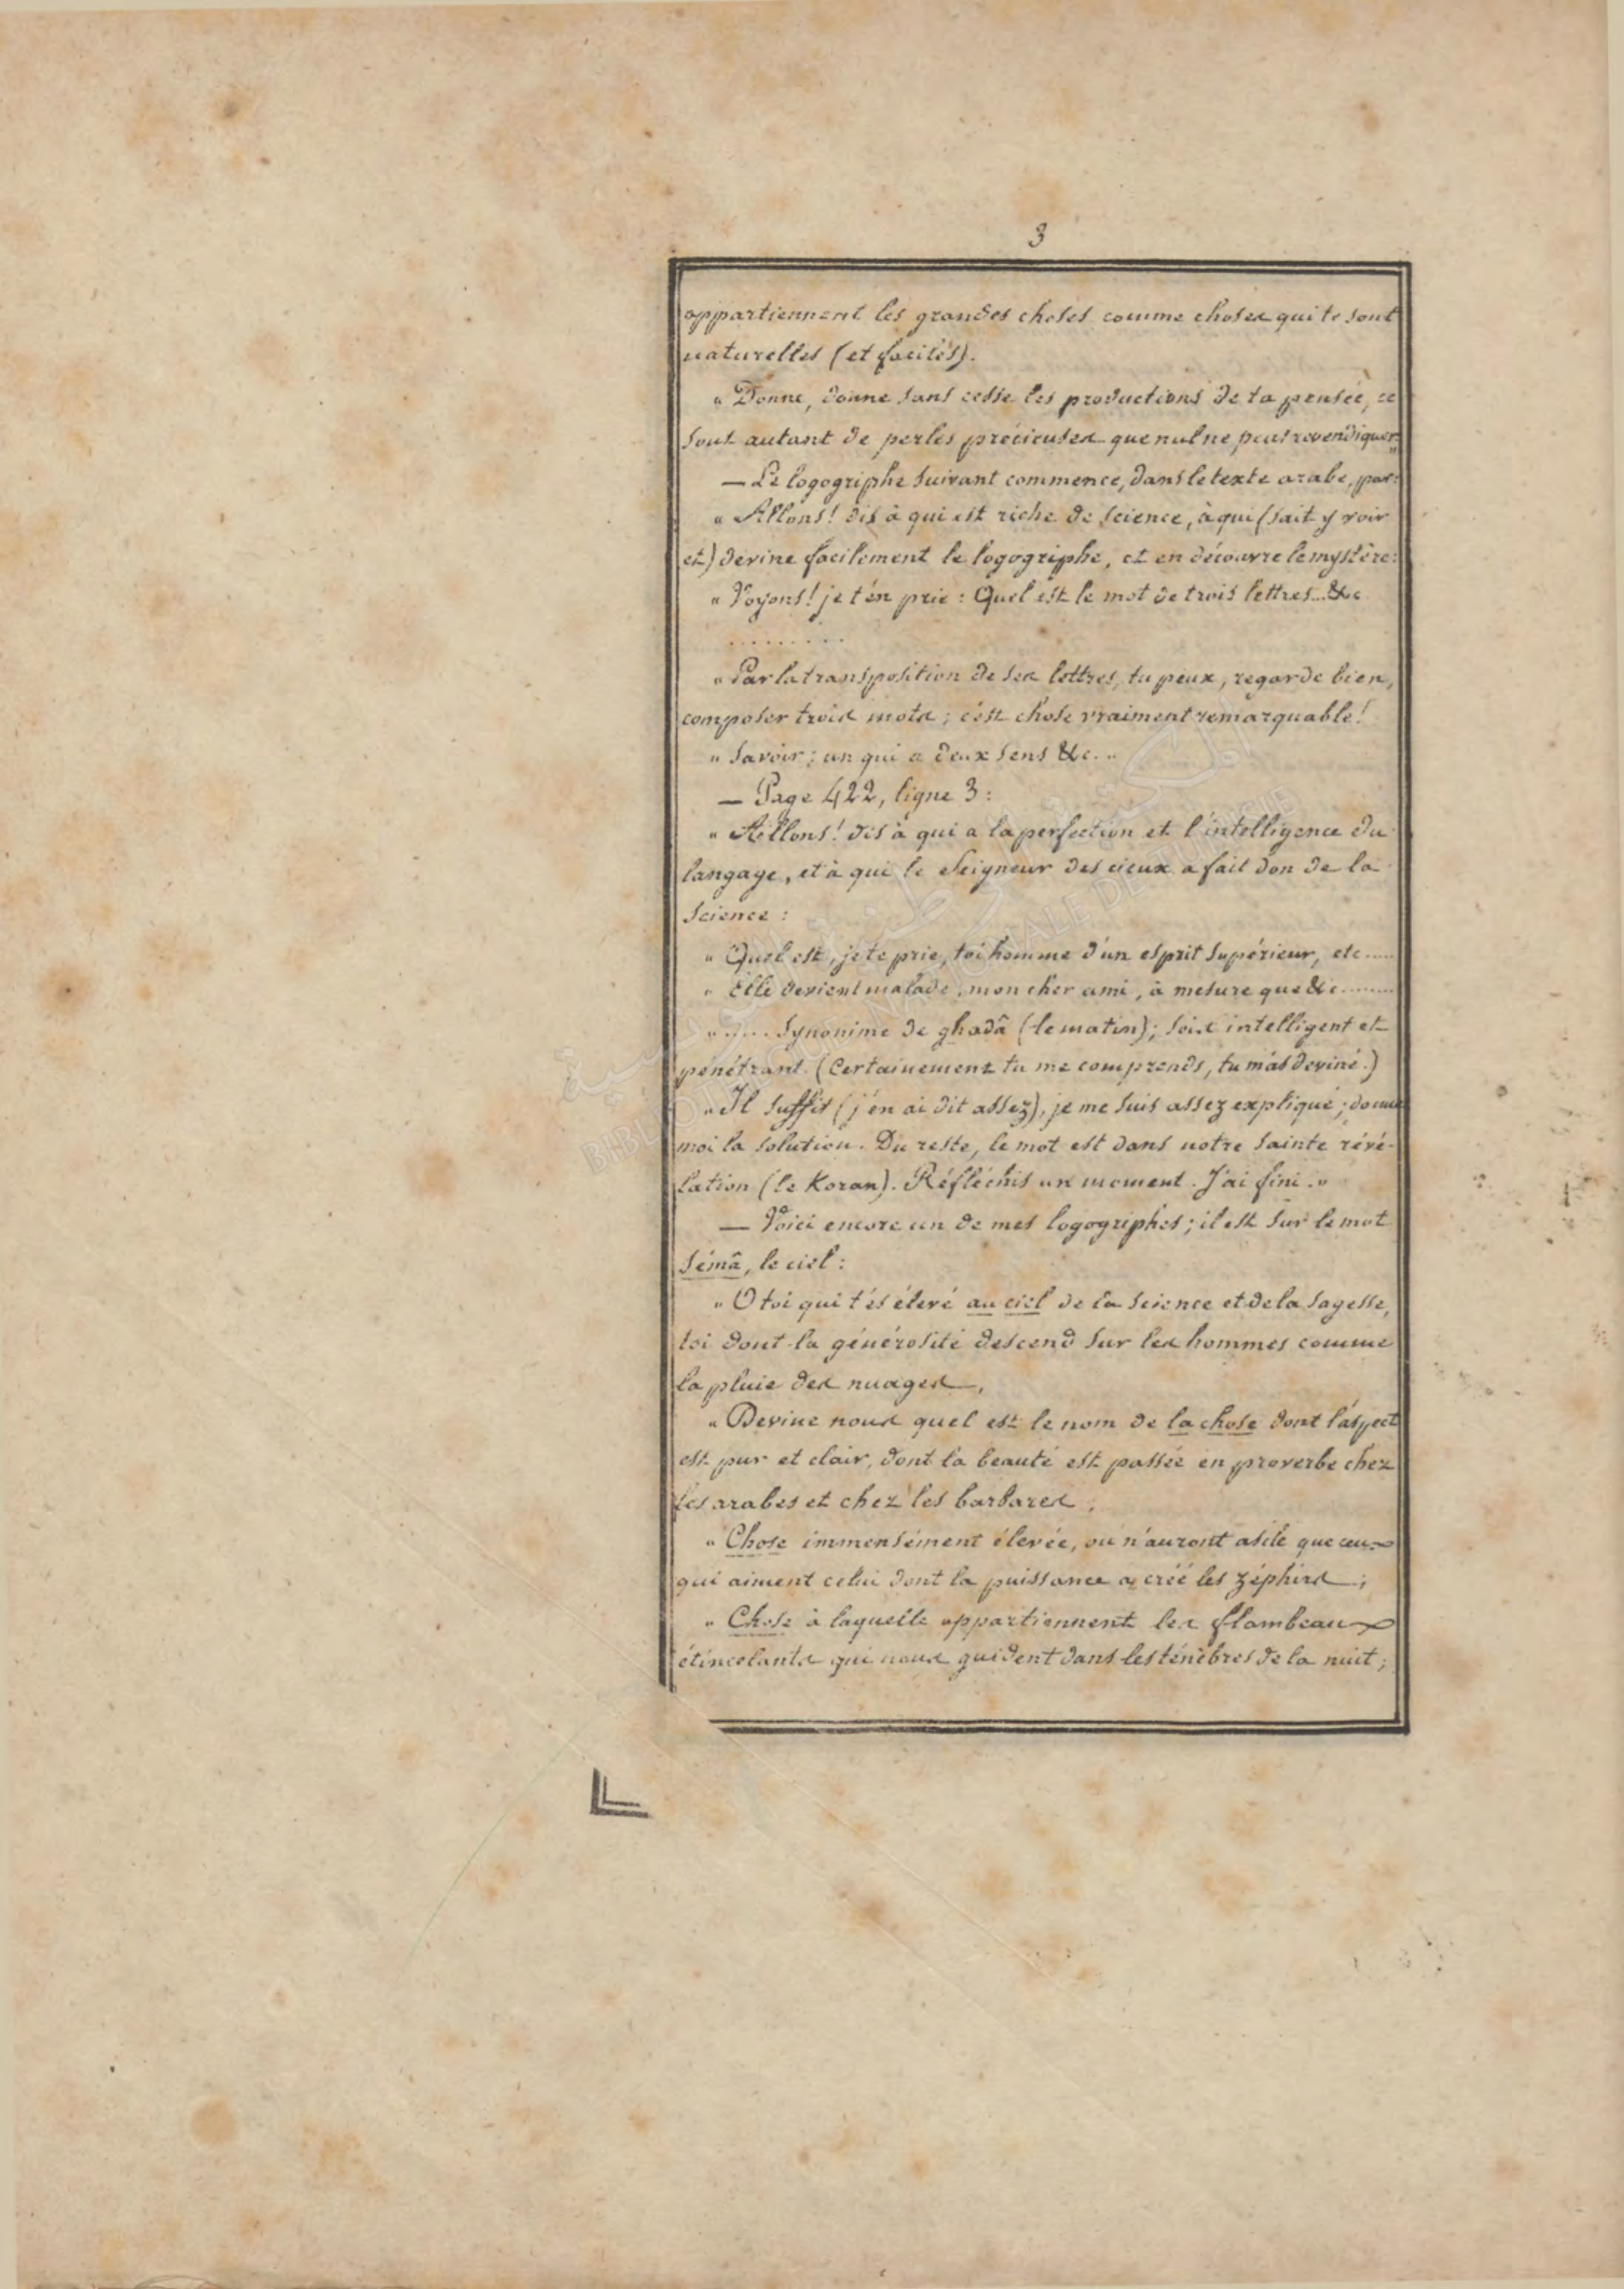 3
appartiennent les grandes choses comme choses qui te sont
naturelles (et faciles).
" Donne, donne sans cesse les productions de ta pensée, ce
sont autant de perles précieuses que nul ne peut revendiquer"
— Le logogriphe suivant commence, dans le texte arabe, par:
" Allons! dis à qui est riche de science, à qui (sait y voir
et) devine facilement le logogriphe, et en découvre le mystère:
" Voyons! je t'en prie : Quel est le mot de trois lettres...&c
.........
" Par la transposition de ses lettres, tu peux, regarde bien,
composer trois mots ; c'est chose vraiment remarquable!
" Savoir ; un qui a deux sens &c. "
— Page 422, ligne 3 :
" Allons! dis à qui a la perfection et l'intelligence du
langage, et à qui le Seigneur des cieux a fait don de la
science :
" Quel est, je te prie, toi homme d'un esprit supérieur, etc.....
" Elle devient malade, mon cher ami, à mesure que &c.........
" ..... Synonime de ghadâ (le matin); sois intelligent et
pénétrant. (Certainement tu me comprends, tu m'as deviné.)
" Il suffit (j'en ai dit assez), je me suis assez expliqué ; donne
moi la solution. Du reste, le mot est dans notre sainte révé-
lation (le Koran). Réfléchis un moment. J'ai fini. "
— Voici encore un de mes logogriphes ; il est sur le mot
sémâ, le ciel :
" O toi qui t'es élevé au ciel de la science et de la sagesse,
toi dont la générosité descend sur les hommes comme
la pluie des nuages,
" Devine nous quel est le nom de la chose dont l'aspect
est pur et clair, dont la beauté est passée en proverbe chez
les arabes et chez les barbares ;
" Chose immensément élevée, où n'auront asile que ceux
qui aiment celui dont la puissance a créé les zéphirs ;
" Chose à laquelle appartiennent les flambeaux
étincelants qui nous guident dans les ténèbres de la nuit ;